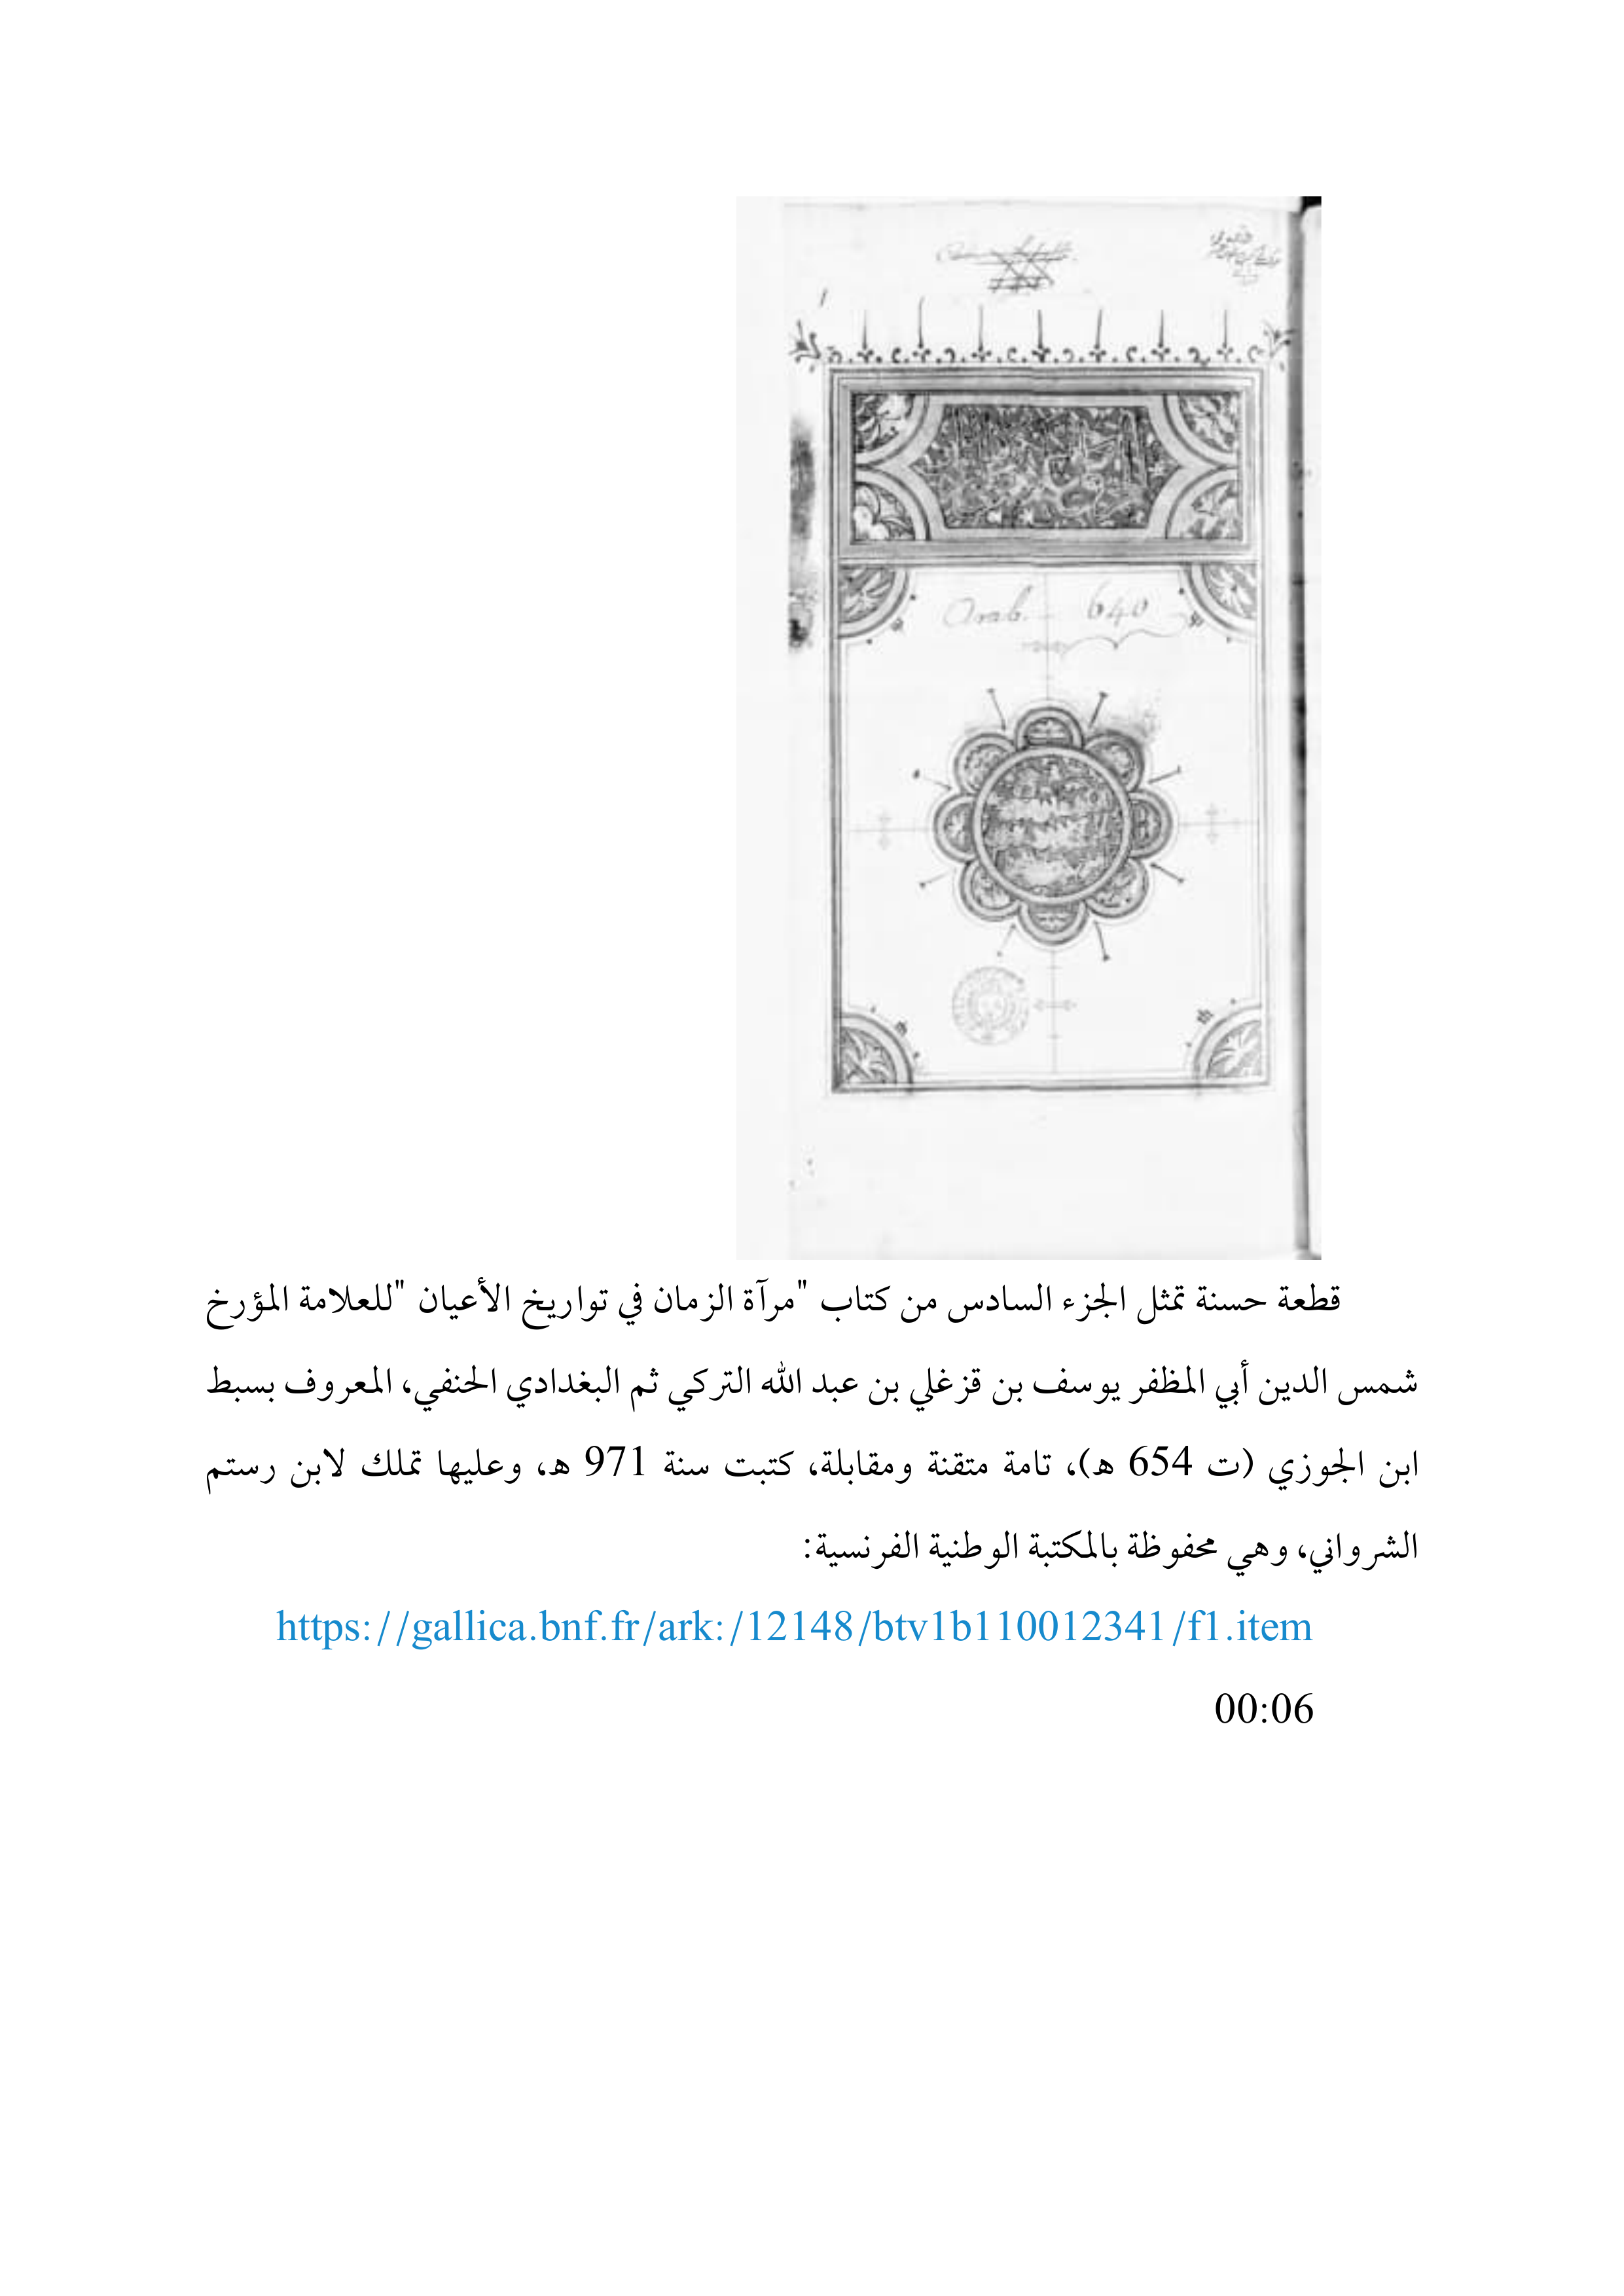 Arab. 640
قطعة حسنة تمثل الجزء السادس من كتاب "مرآة الزمان في تواريخ الأعيان "للعلامة المؤرخ
شمس الدين أبي المظفر يوسف بن قزغلي بن عبد الله التركي ثم البغدادي الحنفي، المعروف بسبط
ابن الجوزي (ت 654 ه)، تامة متقنة ومقابلة، كتبت سنة 971 ه، وعليها تملك لابن رستم
الشرواني، وهي محفوظة بالمكتبة الوطنية الفرنسية:
https://gallica.bnf.fr/ark:/12148/btv1b110012341/f1.item
00:06